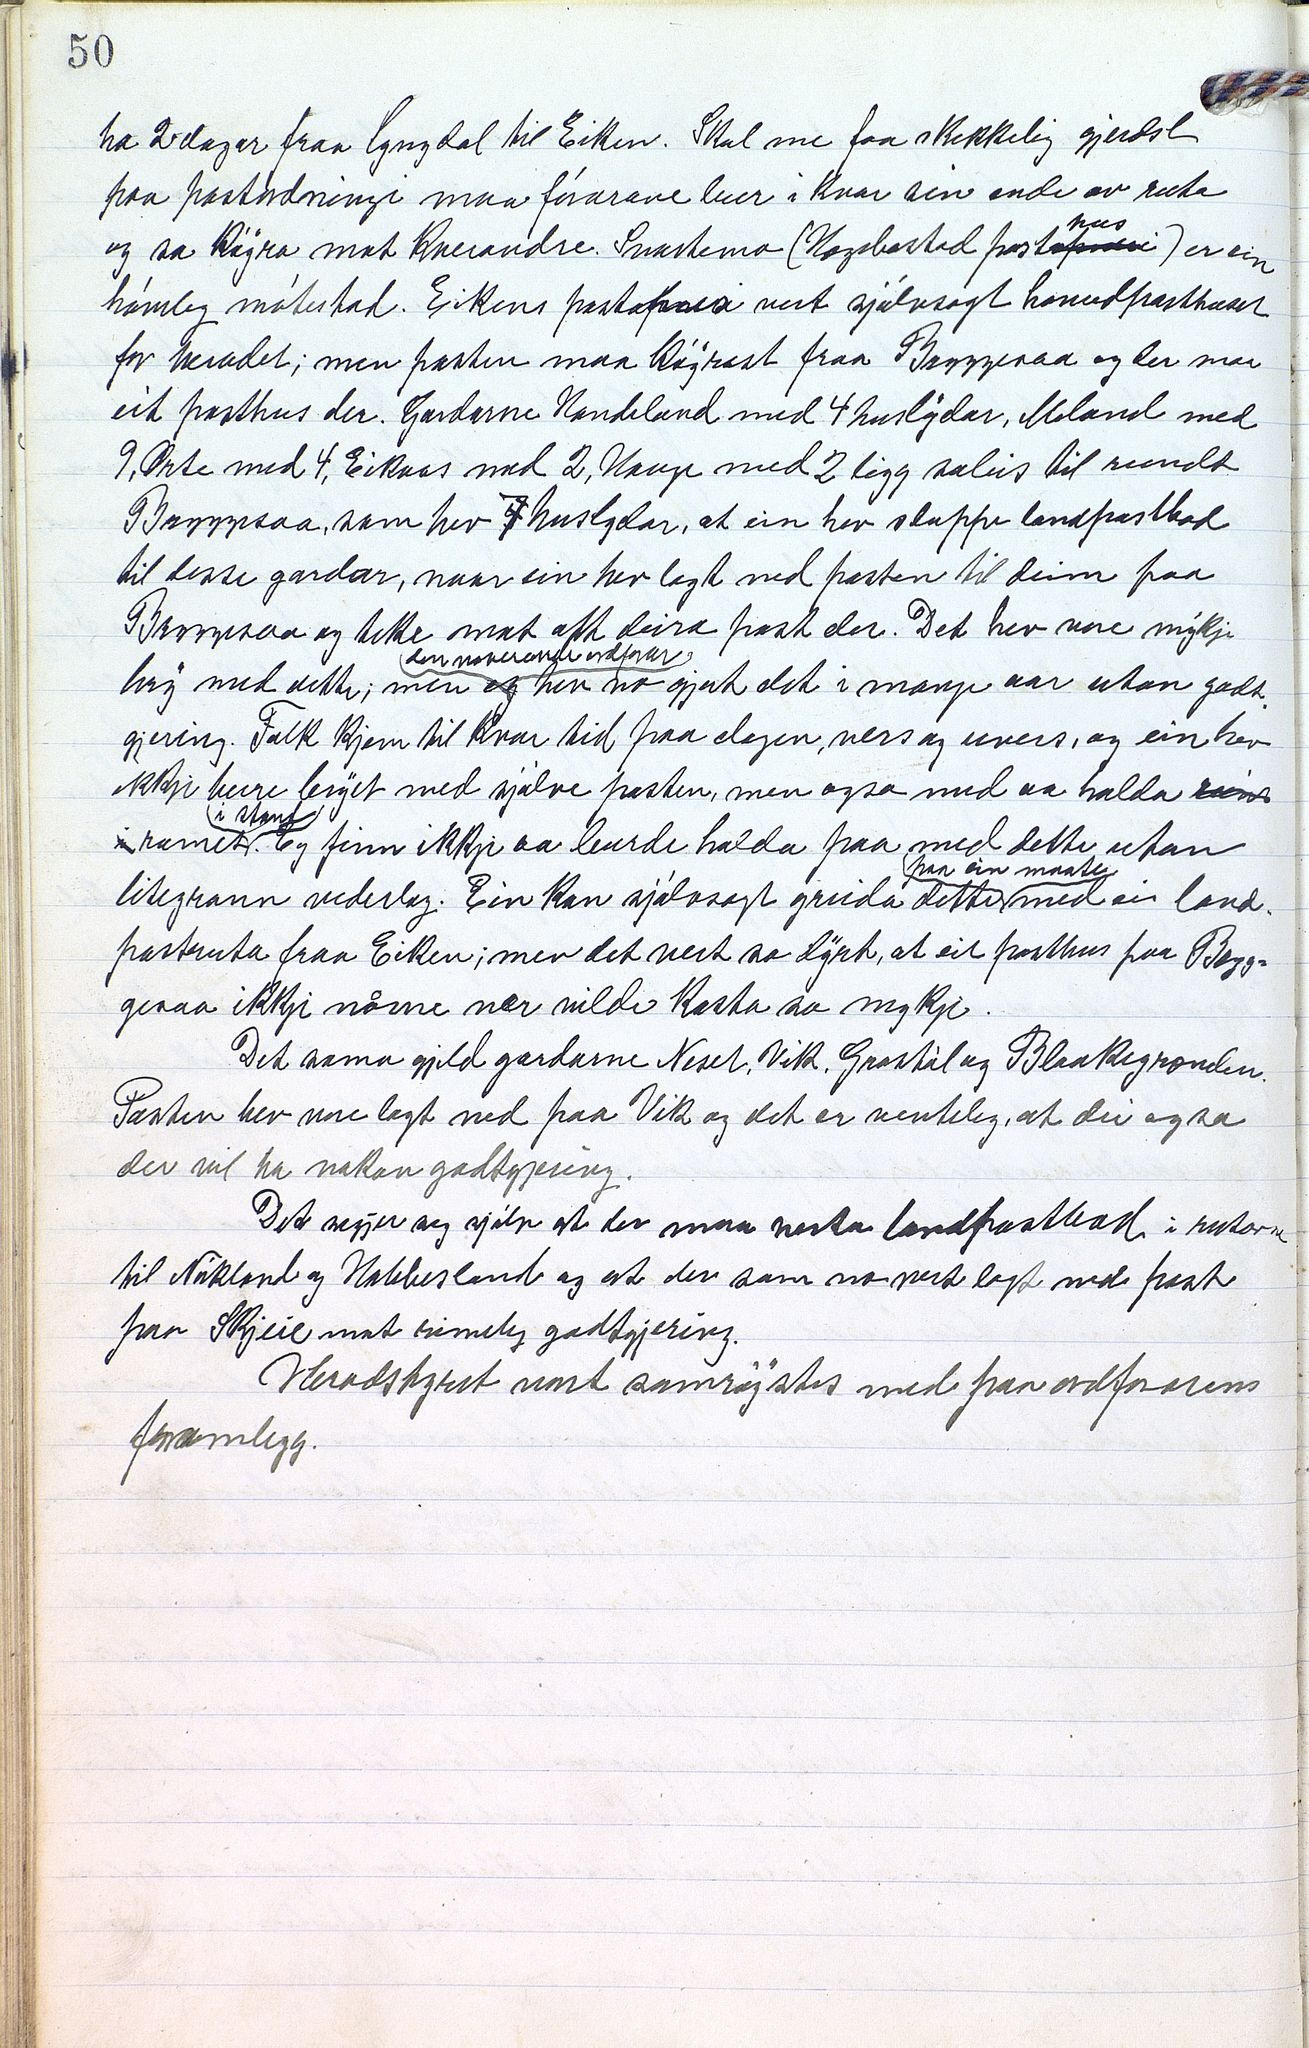 50
ha 2 dagar fraa Lyngdal til Eiken. Skal me faa skikkelig gjerdsl
paa postordningi maa förarane bu i kvar sin ende av ruta
og sa köyra mot kverandre. Snartemo (Hægebostad postopneri hus) er ein
hóveleg mótestad. Eikens postopneri vert sjólvsagt hovudposthuset
for heradet; men posten maa köyrast fraa Byggjesaa og der maa
eit posthus der. Gardarne Handeland med 4 huslydar, Mland med
9, Örte med 4, Eikaas med 2, Hauge med 2 ligg soleis til rundt
Bryggjesaa, som hev 7 huslydar, at ein hev sluppe landpostbod
til desse gardar, naar ein hev lagt ned posten til deim paa
Bryggjesaa og teke mot att deira post der. Det hev vore mykje
den noverande ordförar
bry med dette; men eg hev no gjort det i mange aar utan godt-
gjering. Folk kjem til kvar tid paa dagen, vers og uvers, og ein hev
ikkje berre bryet med sjólve posten, men ogso med aa halda reint
i stand
i romet. Eg finn ikkje aa burde halda paa med dette utan
paa ein maate
litegrann vederlag. Ein kan sjólvsagt greida dette med ei land-
postruta fraa Eiken; men det vert so dyrt, at eit posthus paa Bryg-
gesaa ikkje nóme nær vilde kosta so mykje.
Det sama gjeld gardarne Neset, Vik, Grastöl og Blaakegrenden.
Posten hev vore lagt ned paa Vik og det er venteleg, at dei ogsa
der vil ha nokon godtgjering.
Det segjer seg sjölv at der maa verta landpostbod i rutorne
til Nökland og Hobbesland og at der som no vert lagt ned post
paa Skjeie mot rimeleg godtgjering.
Heradstyret vart samröystes med paa ordförarens
framlegg.